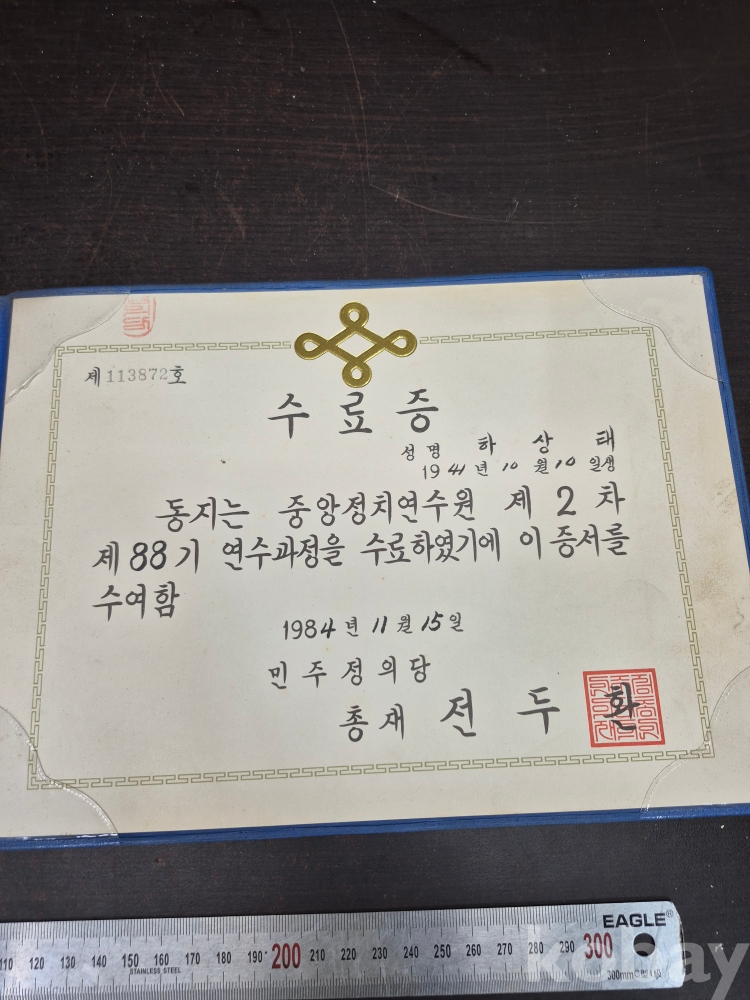 제113872호
수료증
성명 하상태
1941년 10월 10일생
동지는 중앙정치연수원 제2차
제88기 연수과정을 수료하였기에 이 증서를
수여함
1984년 11월 15일
민주정의당
총재 전두환
EAGLE®
110 120 130 140 150 160 170 180 190 200 210 220 230 240 250 260 270 280 290 300
STAINLESS STEEL
kobay